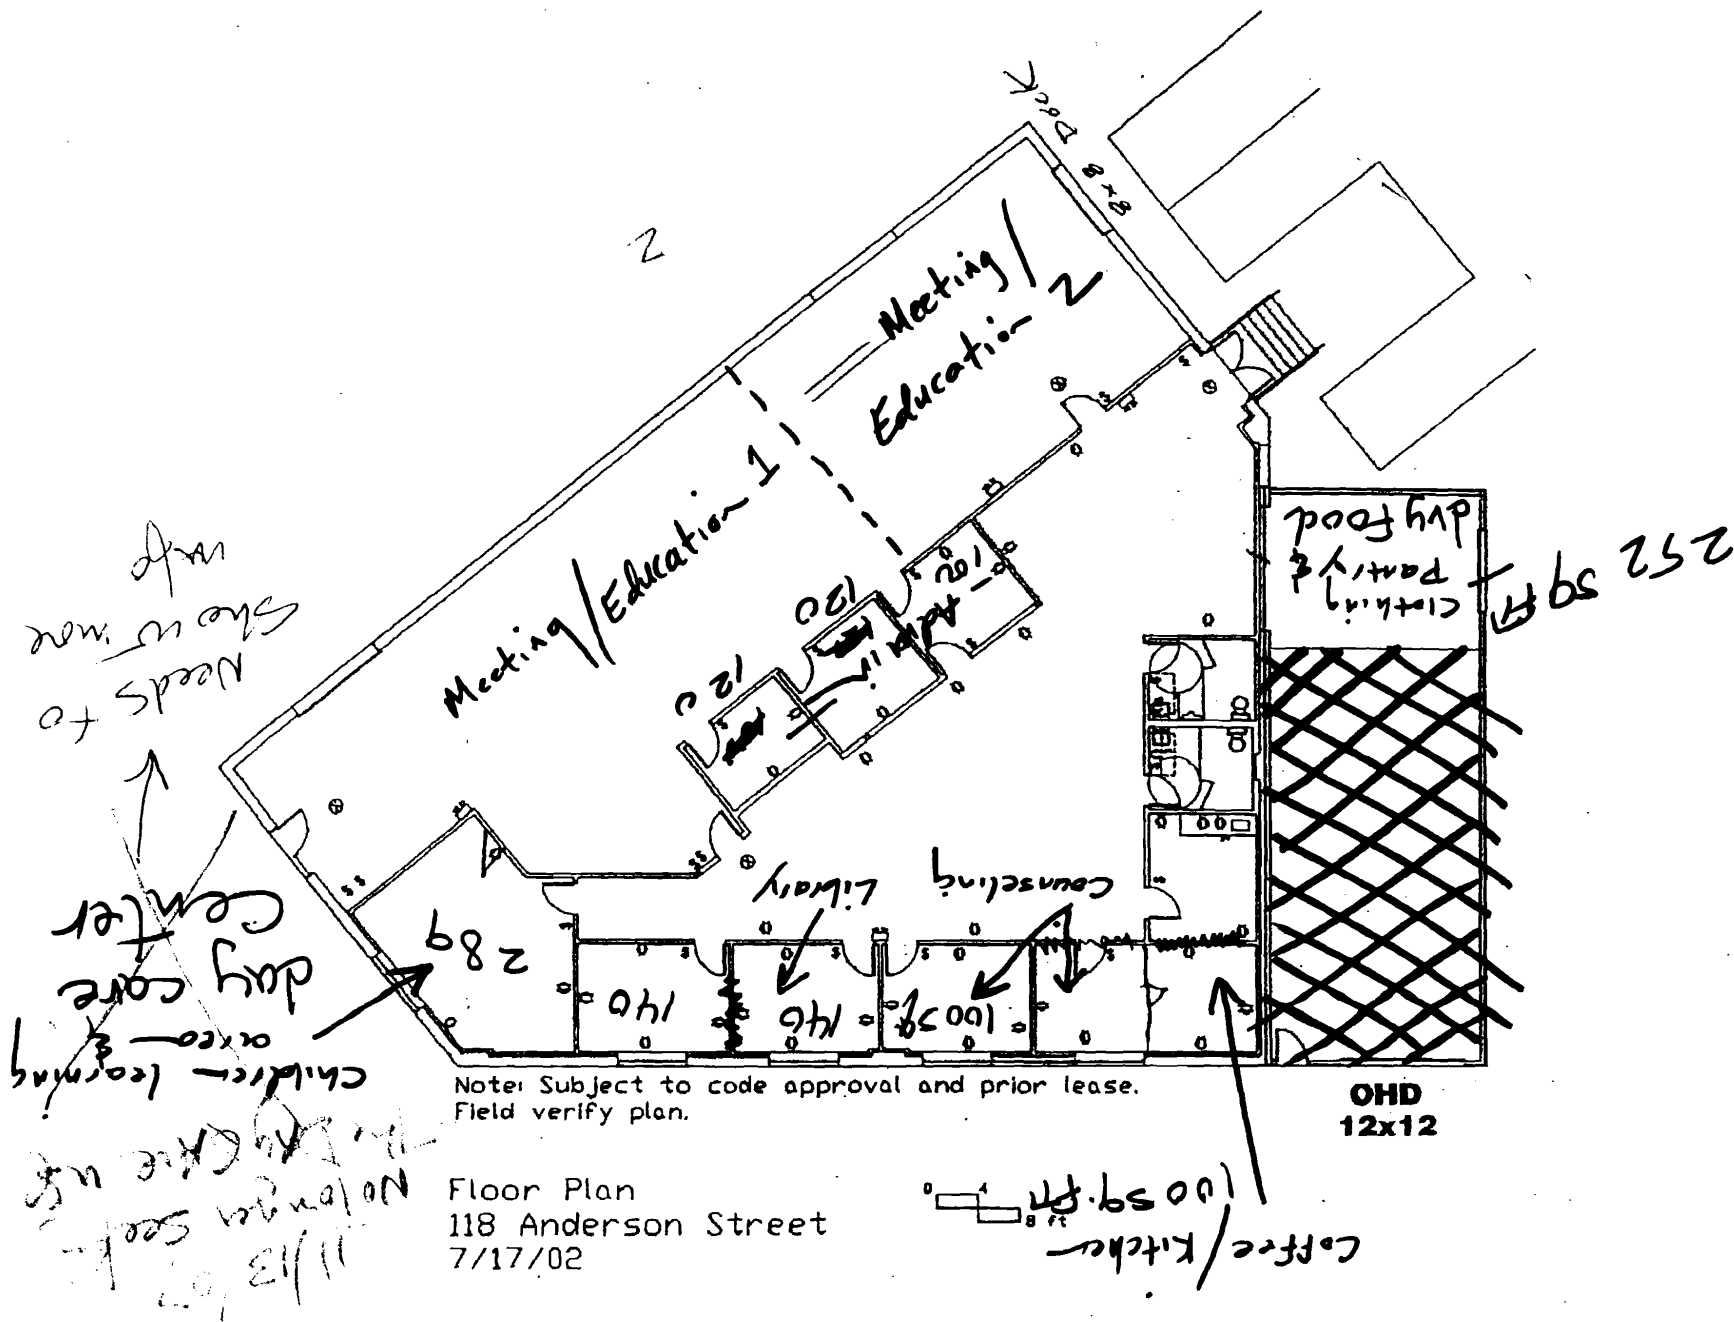 8x8 Dock
2
Meeting/
Education 2
Meeting/Education 1
102
Admin.
120
120
Clothing
Pantry &
dry Food
252 sq ft
Needs to
Show more
info
Library
Counseling
289
140
140
100 sq
Children learning
area &
day care
Center
Note: Subject to code approval and prior lease.
Field verify plan.
OHD
12x12
Floor Plan
118 Anderson Street
7/17/02
0 4
8 ft
Coffee/Kitchen
100 sq. ft
11/13
No longer
The Day Care use